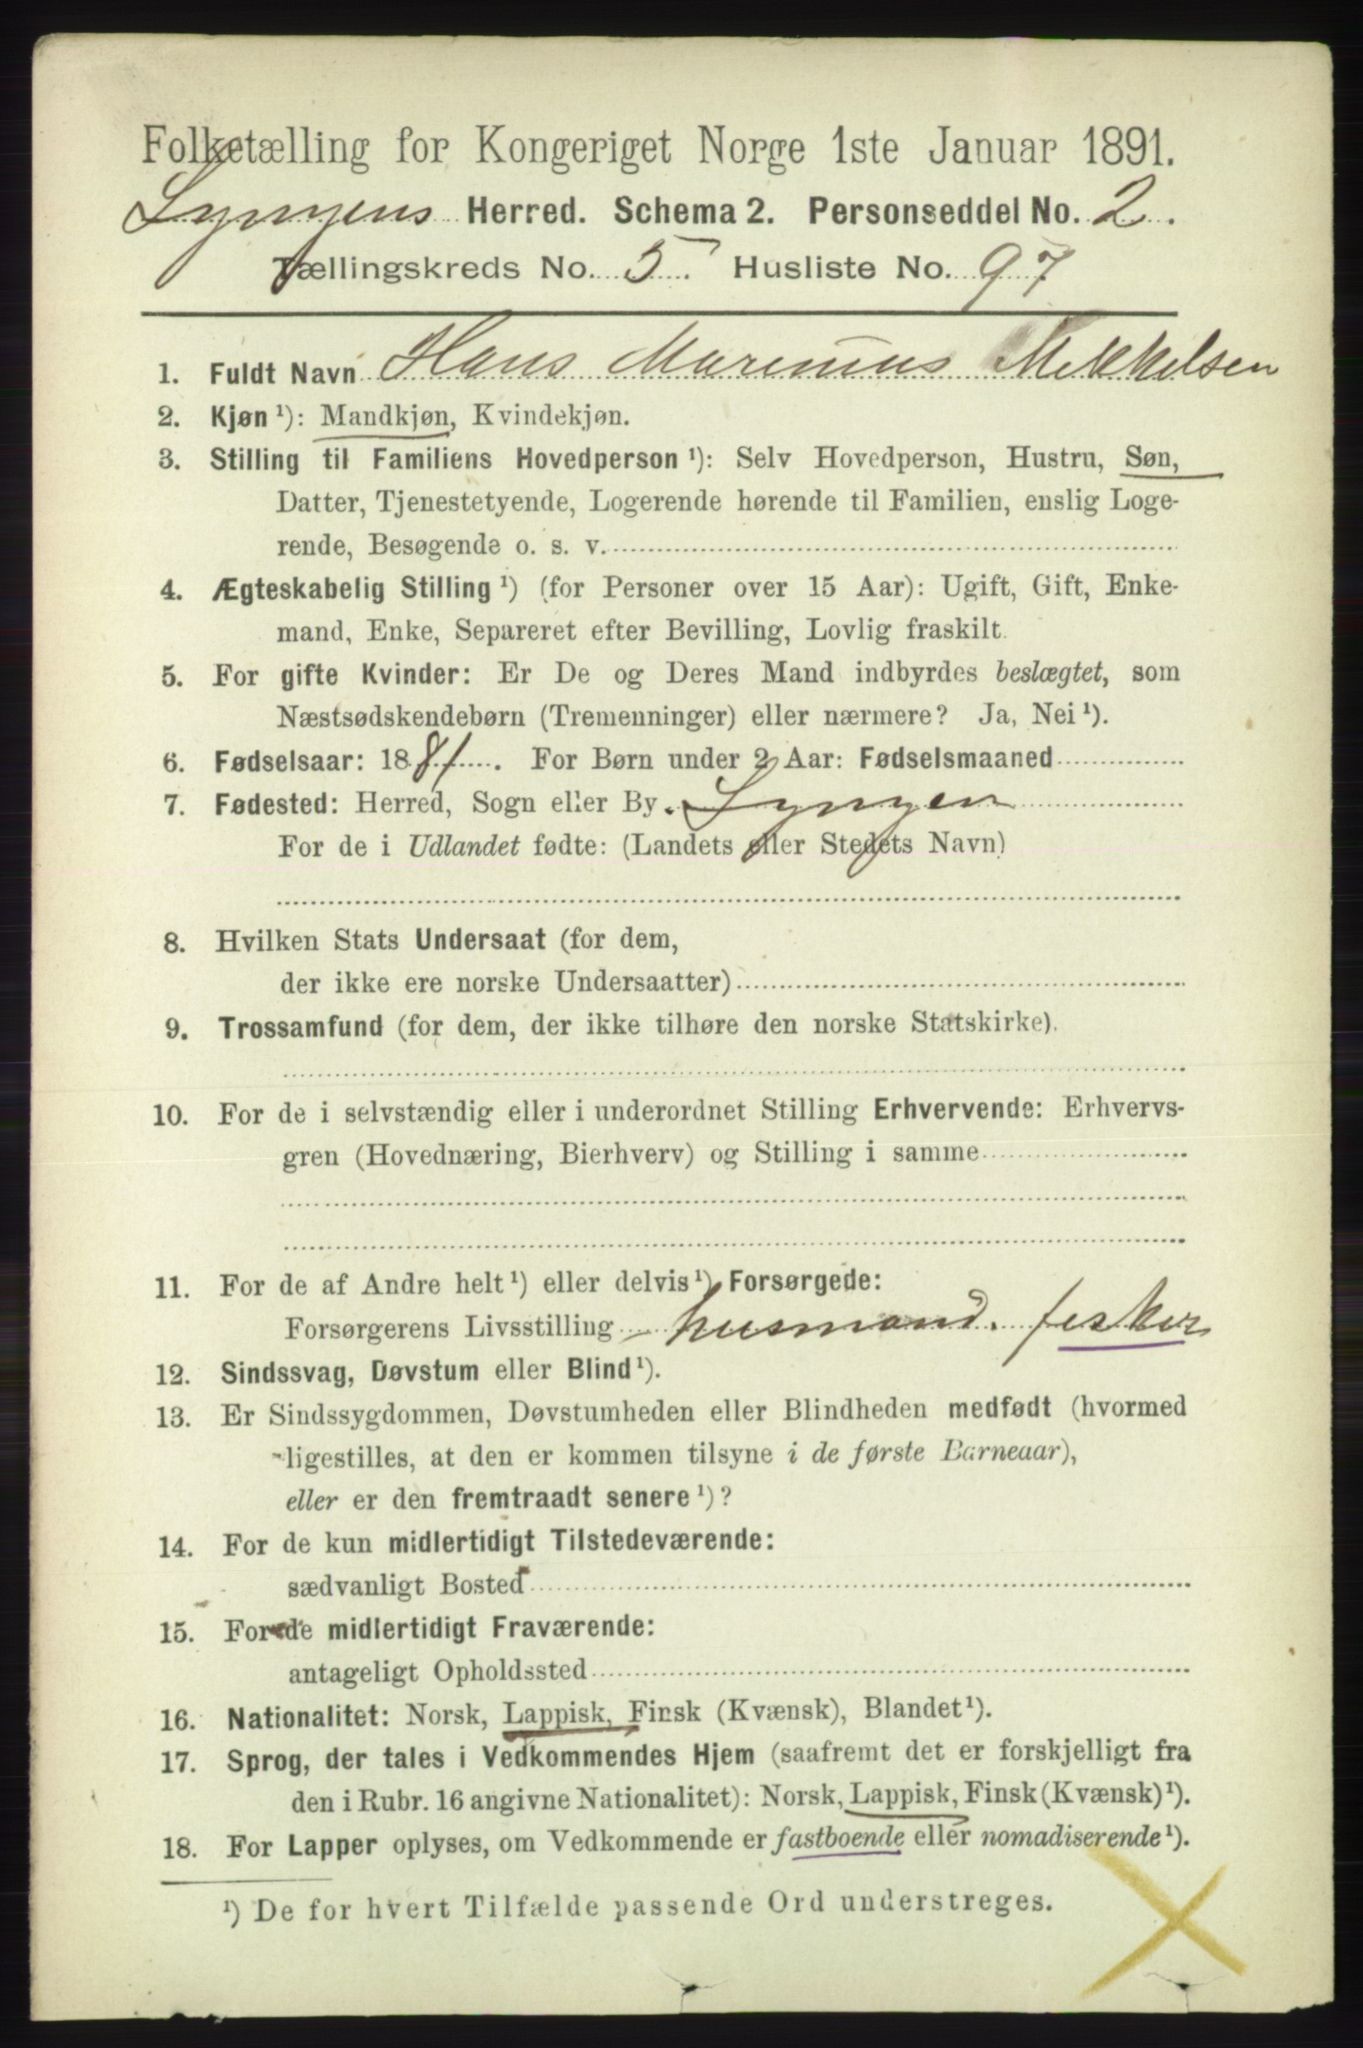 Folketælling for Kongeriget Norge 1ste Januar 1891.
Lyngens Herred. Schema 2. Personseddel No. 2.
Tællingskreds No. 5. Husliste No. 97
1. Fuldt Navn Hans Marenius Mekkelsen
2. Kjøn ¹): Mandkjøn, Kvindekjøn.
3. Stilling til Familiens Hovedperson ¹): Selv Hovedperson, Hustru, Søn,
Datter, Tjenestetyende, Logerende hørende til Familien, enslig Loge-
rende, Besøgende o. s. v.
4. Ægteskabelig Stilling ¹) (for Personer over 15 Aar): Ugift, Gift, Enke-
mand, Enke, Separeret efter Bevilling, Lovlig fraskilt.
5. For gifte Kvinder: Er De og Deres Mand indbyrdes beslægtet, som
Næstsødskendebørn (Tremenninger) eller nærmere? Ja, Nei ¹).
6. Fødselsaar: 1881. For Børn under 2 Aar: Fødselsmaaned
7. Fødested: Herred, Sogn eller By. Lyngen
For de i Udlandet fødte: (Landets eller Stedets Navn)
8. Hvilken Stats Undersaat (for dem,
der ikke ere norske Undersaatter)
9. Trossamfund (for dem, der ikke tilhøre den norske Statskirke).
10. For de i selvstændig eller i underordnet Stilling Erhvervende: Erhvervs-
gren (Hovednæring, Bierhverv) og Stilling i samme
11. For de af Andre helt ¹) eller delvis ¹) Forsørgede:
Forsørgerens Livsstilling husmand. fesker
12. Sindssvag, Døvstum eller Blind ¹).
13. Er Sindssygdommen, Døvstumheden eller Blindheden medfødt (hvormed
ligestilles, at den er kommen tilsyne i de første Barneaar),
eller er den fremtraadt senere ¹)?
14. For de kun midlertidigt Tilstedeværende:
sædvanligt Bosted
15. For de midlertidigt Fraværende:
antageligt Opholdssted
16. Nationalitet: Norsk, Lappisk, Finsk (Kvænsk), Blandet ¹).
17. Sprog, der tales i Vedkommendes Hjem (saafremt det er forskjelligt fra
den i Rubr. 16 angivne Nationalitet): Norsk, Lappisk, Finsk (Kvænsk) ¹).
18. For Lapper oplyses, om Vedkommende er fastboende eller nomadiserende ¹).
¹) De for hvert Tilfælde passende Ord understreges.